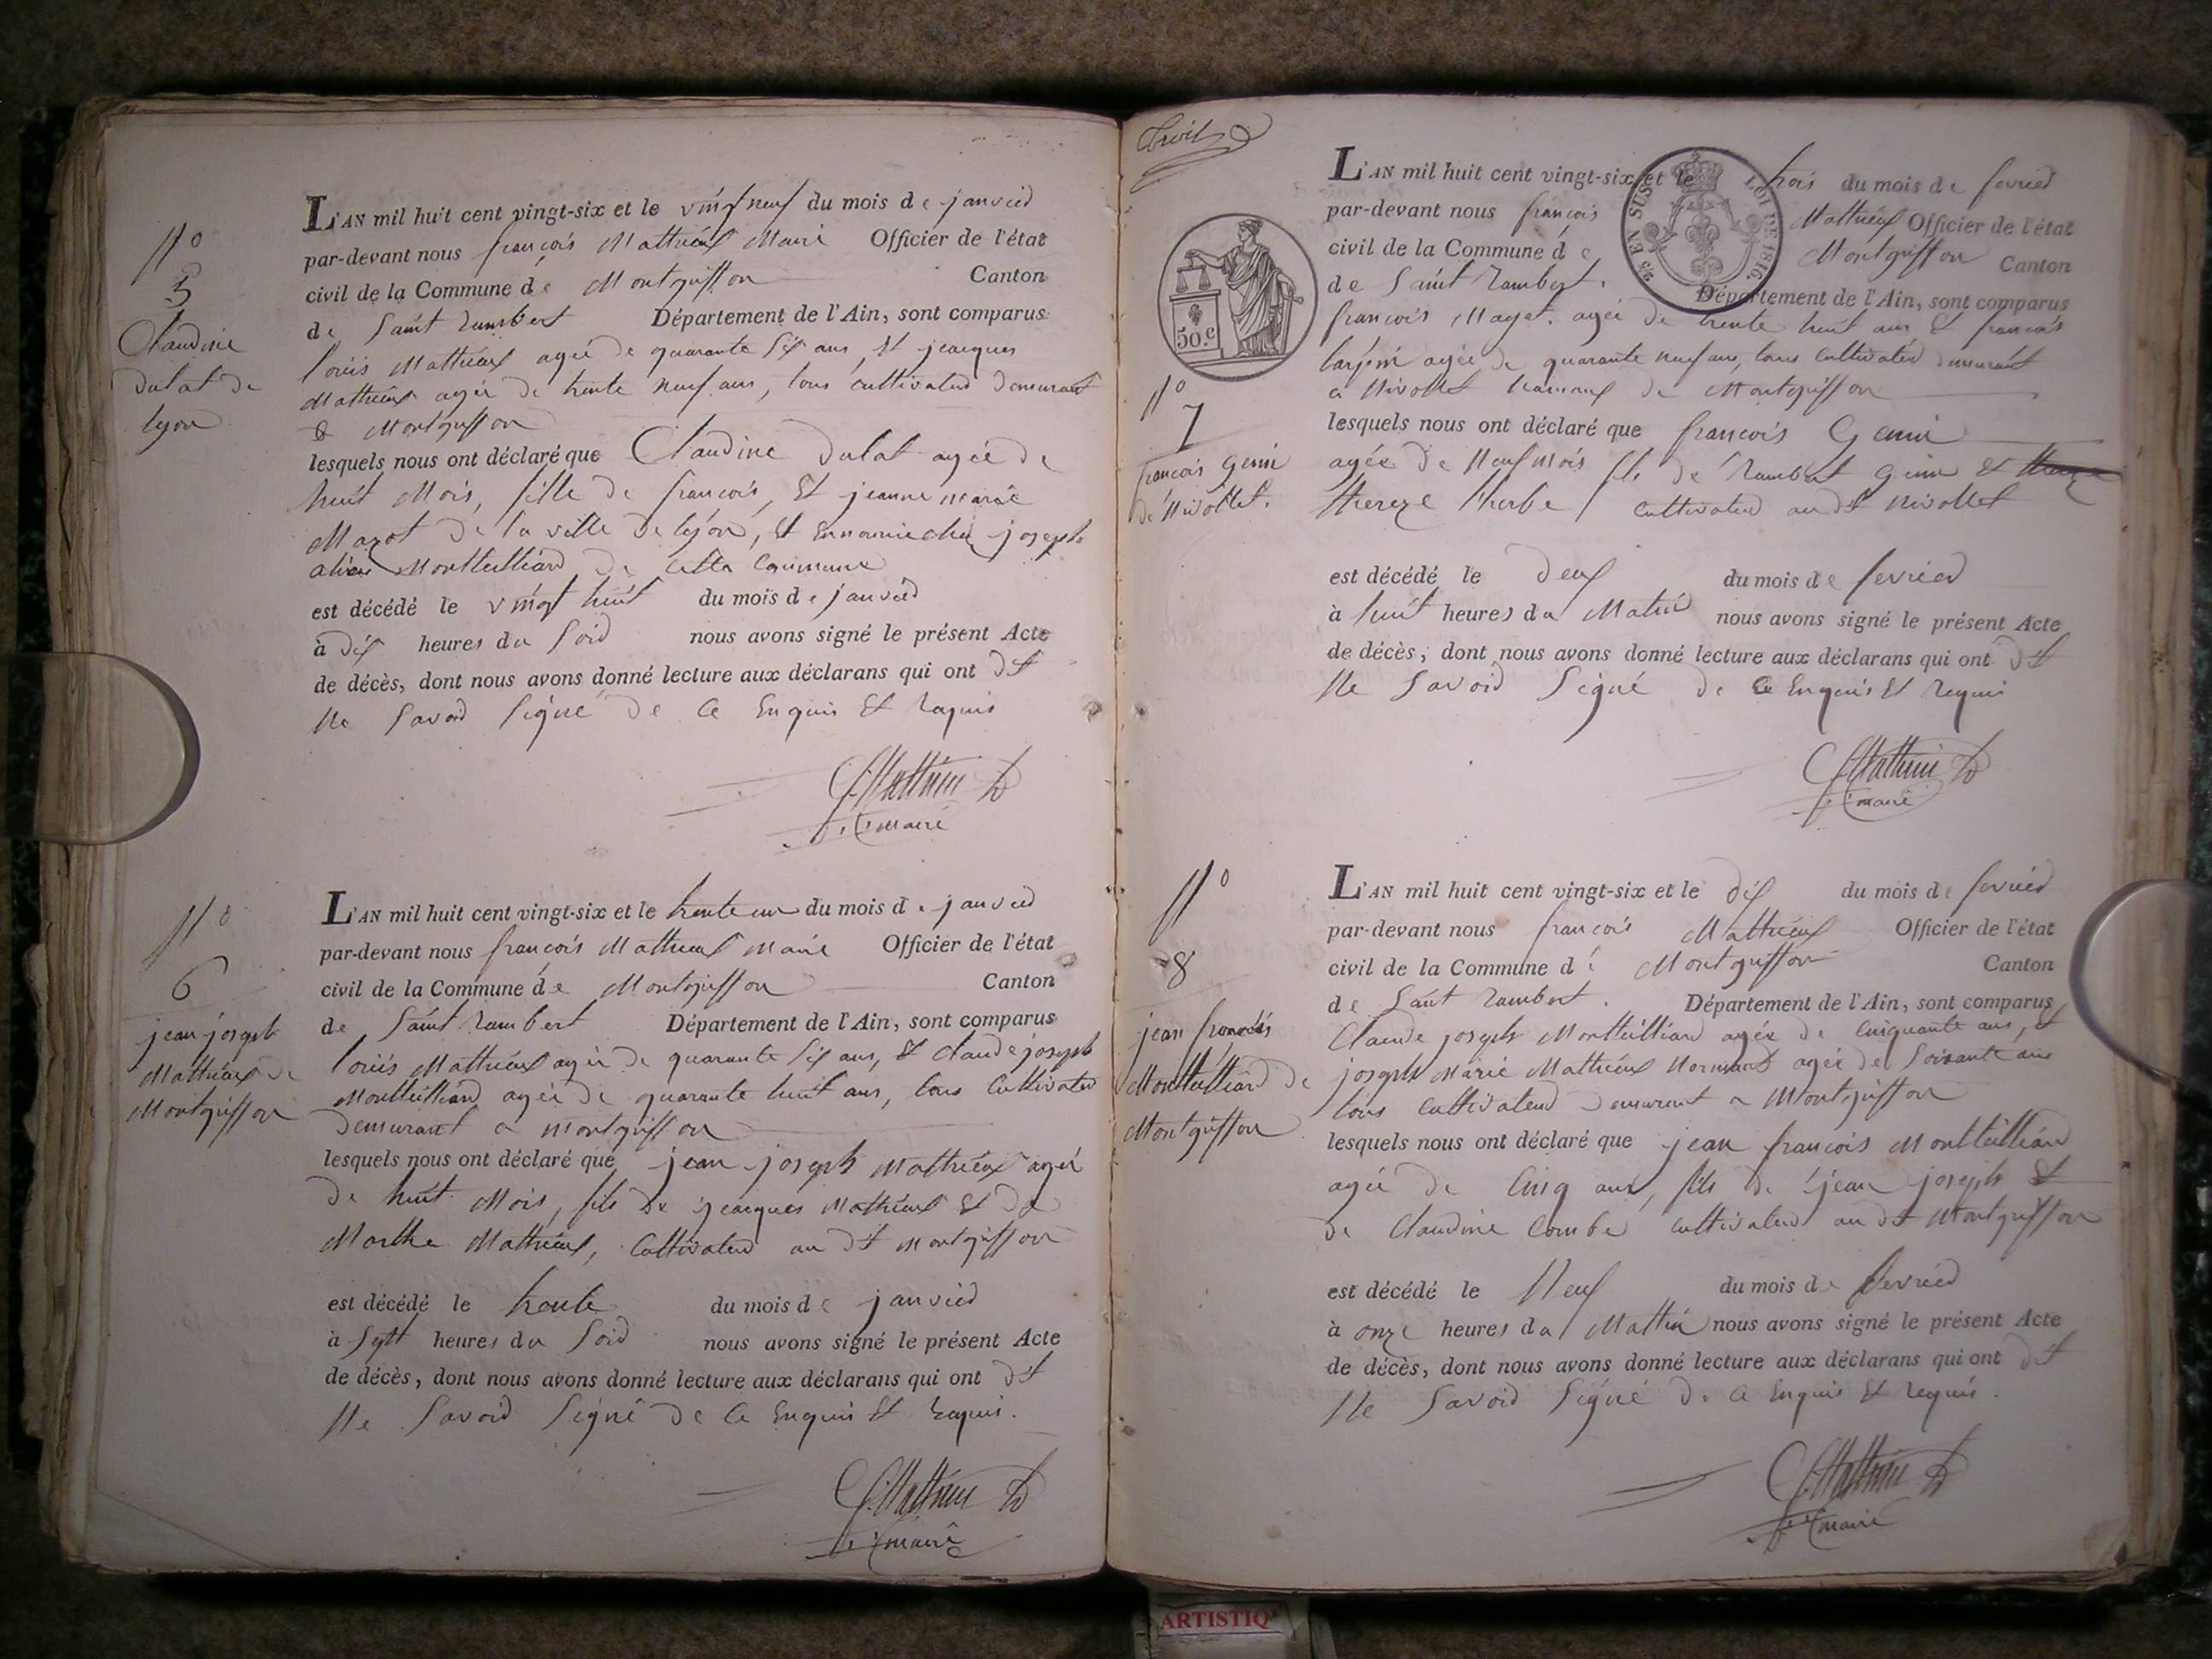 N°
5
Claudine
dulat de
lyon
L'AN mil huit cent vingt-six et le vingt neuf du mois de janvied
par-devant nous françois Mathieux Maire Officier de l'état
civil de la Commune de Montgriffon Canton
de Saint Rambert Département de l'Ain, sont comparus
louis Mathieux agée de quarante Six ans, Et jeacques
Mathieux agée de trente neuf ans, tous cultivateud demurant
a Montgriffon
lesquels nous ont déclaré que Claudine dulat agée de
huit Mois, fille de françois, Et jeanne marie
Mazot de la ville de lyon, Et En nourrice chez joseph
alias Montteilliard de cette Commune
est décédé le vingt huit du mois de janvied
à dix heures du Soid nous avons signé le présent Acte
de décès, dont nous avons donné lecture aux déclarans qui ont dit
Ne Savoid Signé de Ce Enquis Et Requis
f. Mathieu
maire
N°
6
jean joseph
Mathieux de
Montgriffon
L'AN mil huit cent vingt-six et le trente un du mois de janvied
par-devant nous françois Mathieux maire Officier de l'état
civil de la Commune de Montgriffon Canton
de Saint Rambert Département de l'Ain, sont comparus
louis Mathieux agée de quarante Six ans, Et Claude joseph
Montteilliard agée de quarante huit ans, tous Cultivateud
demurant a montgriffon
lesquels nous ont déclaré que jean joseph Mathieux agée
de huit Mois, fils de jeacques Mathieux Et de
Marthe Mathieux, Cultivateud au dit montgriffon
est décédé le trente du mois de janvied
à Sept heures du Soid nous avons signé le présent Acte
de décès, dont nous avons donné lecture aux déclarans qui ont dit
Ne Savoid Signé de Ce Enquis Et Requis.
f. Mathieu
maire
50.c
2/3 EN SUS
LOI DE 1816.
N°
7
françois Genin
de Nivollet.
L'AN mil huit cent vingt-six et le trois du mois de fevried
par-devant nous françois Mathieux Officier de l'état
civil de la Commune de Montgriffon Canton
de Saint Rambert. Département de l'Ain, sont comparus
françois Mayet. agée de trente huit ans Et françois
agée de quarante neuf ans, tous Cultivateud demurant
a Nivollet hameaux de Montgriffon
lesquels nous ont déclaré que françois Genin
agée de Neuf mois fils de Rambert Genin Et
thereze therbe Cultivateud au dit Nivollet
est décédé le deux du mois de fevried
à huit heures du Matin nous avons signé le présent Acte
de décès, dont nous avons donné lecture aux déclarans qui ont dit
Ne Savoid Signé de Ce Enquis Et Requis
f. Mathieu
maire
N°
8
jean françois
Montteilliard de
Montgriffon
L'AN mil huit cent vingt-six et le dix du mois de fevried
par-devant nous françois Mathieux Officier de l'état
civil de la Commune de Montgriffon Canton
de Saint Rambert. Département de l'Ain, sont comparus
Claude joseph Montteilliard agée de Cinquante ans, Et
joseph Marie Mathieux agée de Soixante ans
tous Cultivateud demurent a Montgriffon
lesquels nous ont déclaré que jean françois Montteilliard
agée de Cinq ans, fils de jean joseph Et
de Claudine Combe Cultivateud au dit Montgriffon
est décédé le Neuf du mois de fevried
à onze heures du Mattin nous avons signé le présent Acte
de décès, dont nous avons donné lecture aux déclarans qui ont dit
Ne Savoid Signé de Ce Enquis Et Requis.
f. Mathieu
maire
ARTISTIQ